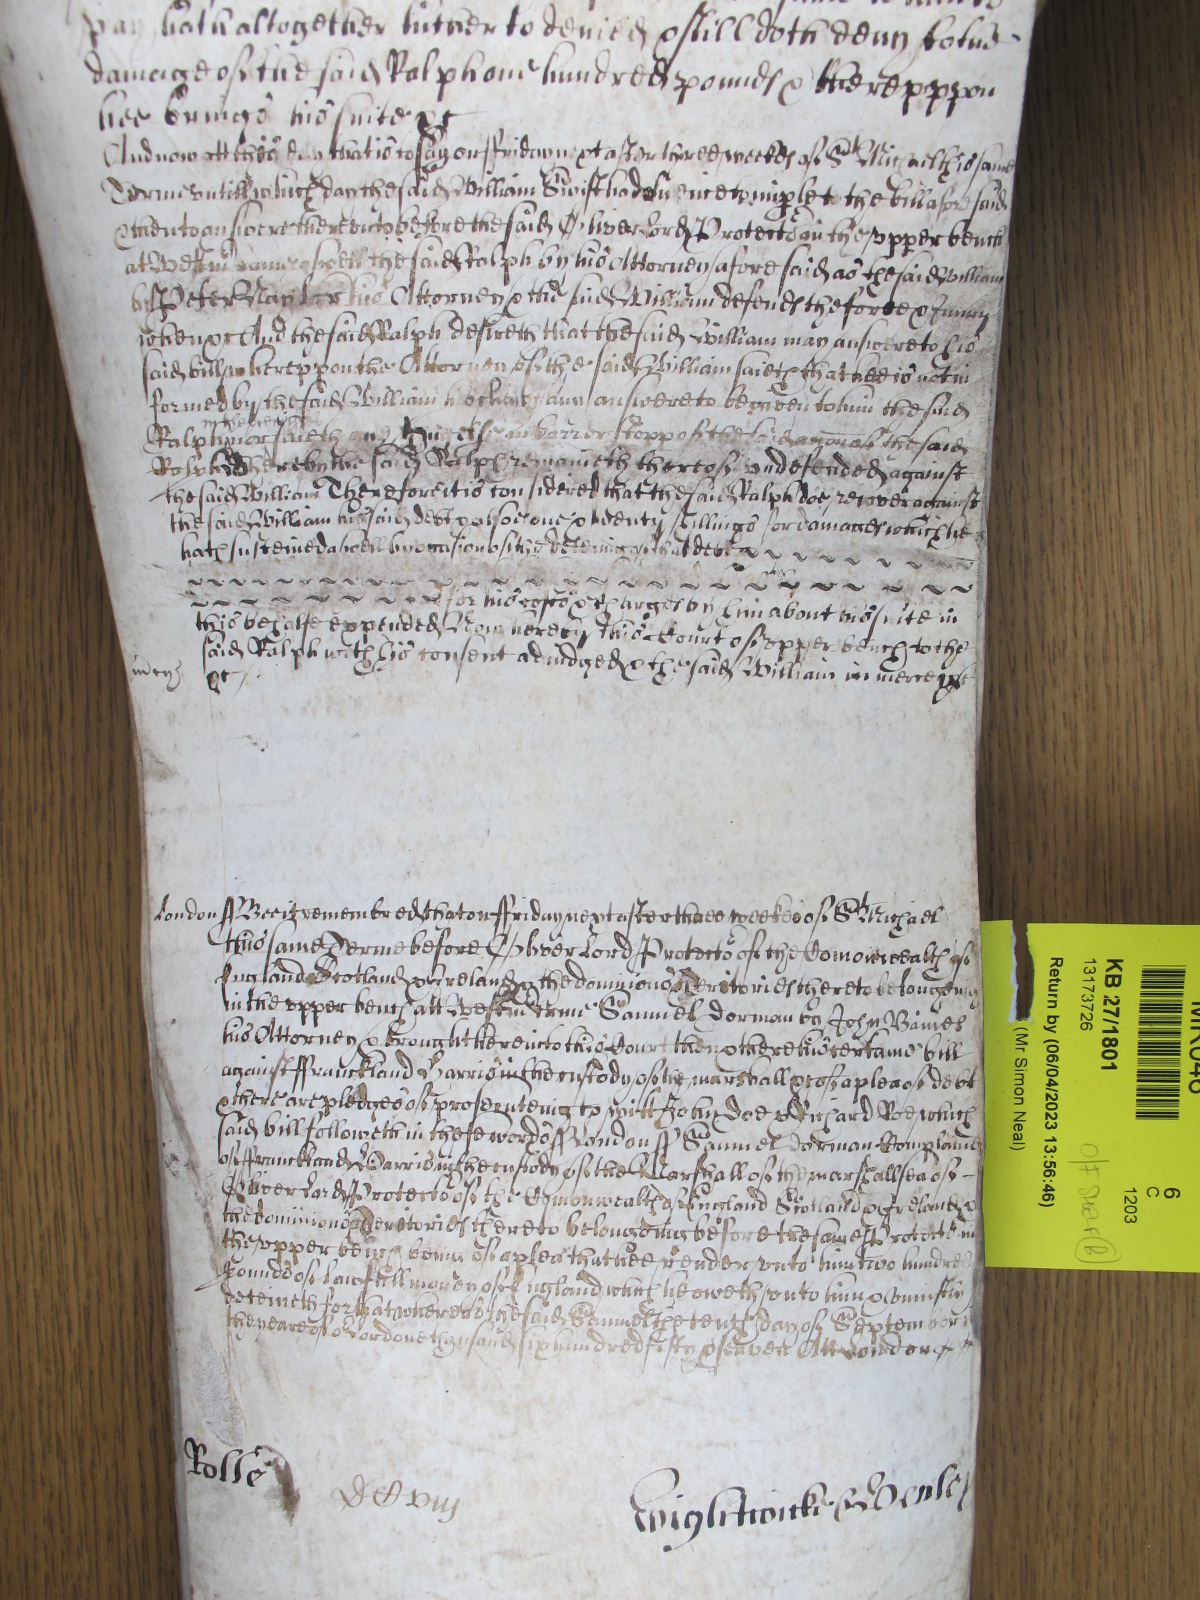 pay hath altogether hither to denied & still doth deny to the
damage of the said Ralph one hundred pounds & thereuppon
hee brings his suite &c
And now att this day that is to say on ffriday next after three weekes of St Michael this same
Terme untill which day the said William Swift had licence to imparle to the bill aforesaid
& then to answere thereunto before the said Oliver Lord Protector in the upper bench
at Westm came aswell the said Ralph by his Attorney aforesaid as the said William
by Peter Naylor his Attorney & the said William defends the force & Iniury
when &c And the said Ralph desireth that the said William may answere to his
said bill whereuppon the Attorney of the said William saieth that hee is not in
formed by the said William his client any answere to be given to him the said
Ralph nor saieth any thinge else in barr or stopp of the said accon of the said
Ralph whereby the said Ralph remaineth thereof undefended against
the said William Therefore it is considered that the said Ralph doe recover against
the said William his said debt & also one & twenty shillings for damages which he
hath susteined aswell by occasion of the deteining of that debt
for his costs & charges by him about his suite in
this behalfe expended Now hereby this Court of upper bench to the
said Ralph with his consent adiudged & the said William in mercy
&c
in mcy
London ss Bee it remembred that on ffriday next after three weekes of St Michael
this same Terme before Oliver Lord Protector of the Comonwealth of
England Scotland & Ireland & the dominions & Teritories thereto belongeing
in the upper bench att Westm came Samuel Dorman by John Baines
his Attorney & brought here into this Court then & there his certaine bill
against ffranckland Harris in the custody of the marshall &c of a plea of debt
& there are pledges of prosecuteing to witt John Doe & Richard Roe which
said bill followeth in these words ss London ss Samuel Dorman Complaines
of ffranckland Harris in the custody of the Marshall of the marshallsea of
Oliver Lord Protector of the Comonwealth of England Scotland & Ireland &
the dominions & Teritories thereto belongeing before the same Protector in
the upper bench being of a plea that hee render unto him two hundred
pounds of lawfull money of England which hee oweth unto him & uniustly
deteineth for that whereas the said Samuel the tenth day of September in
the yeare of or Lord one thousand six hundred fifty & seaven Att London
Rolle
Wightwicke & Henley
KB 27/1801
13173726
Return by (06/04/2023 13:56:46)
(Mr Simon Neal)
6
C
1203
Off Stairs (B)